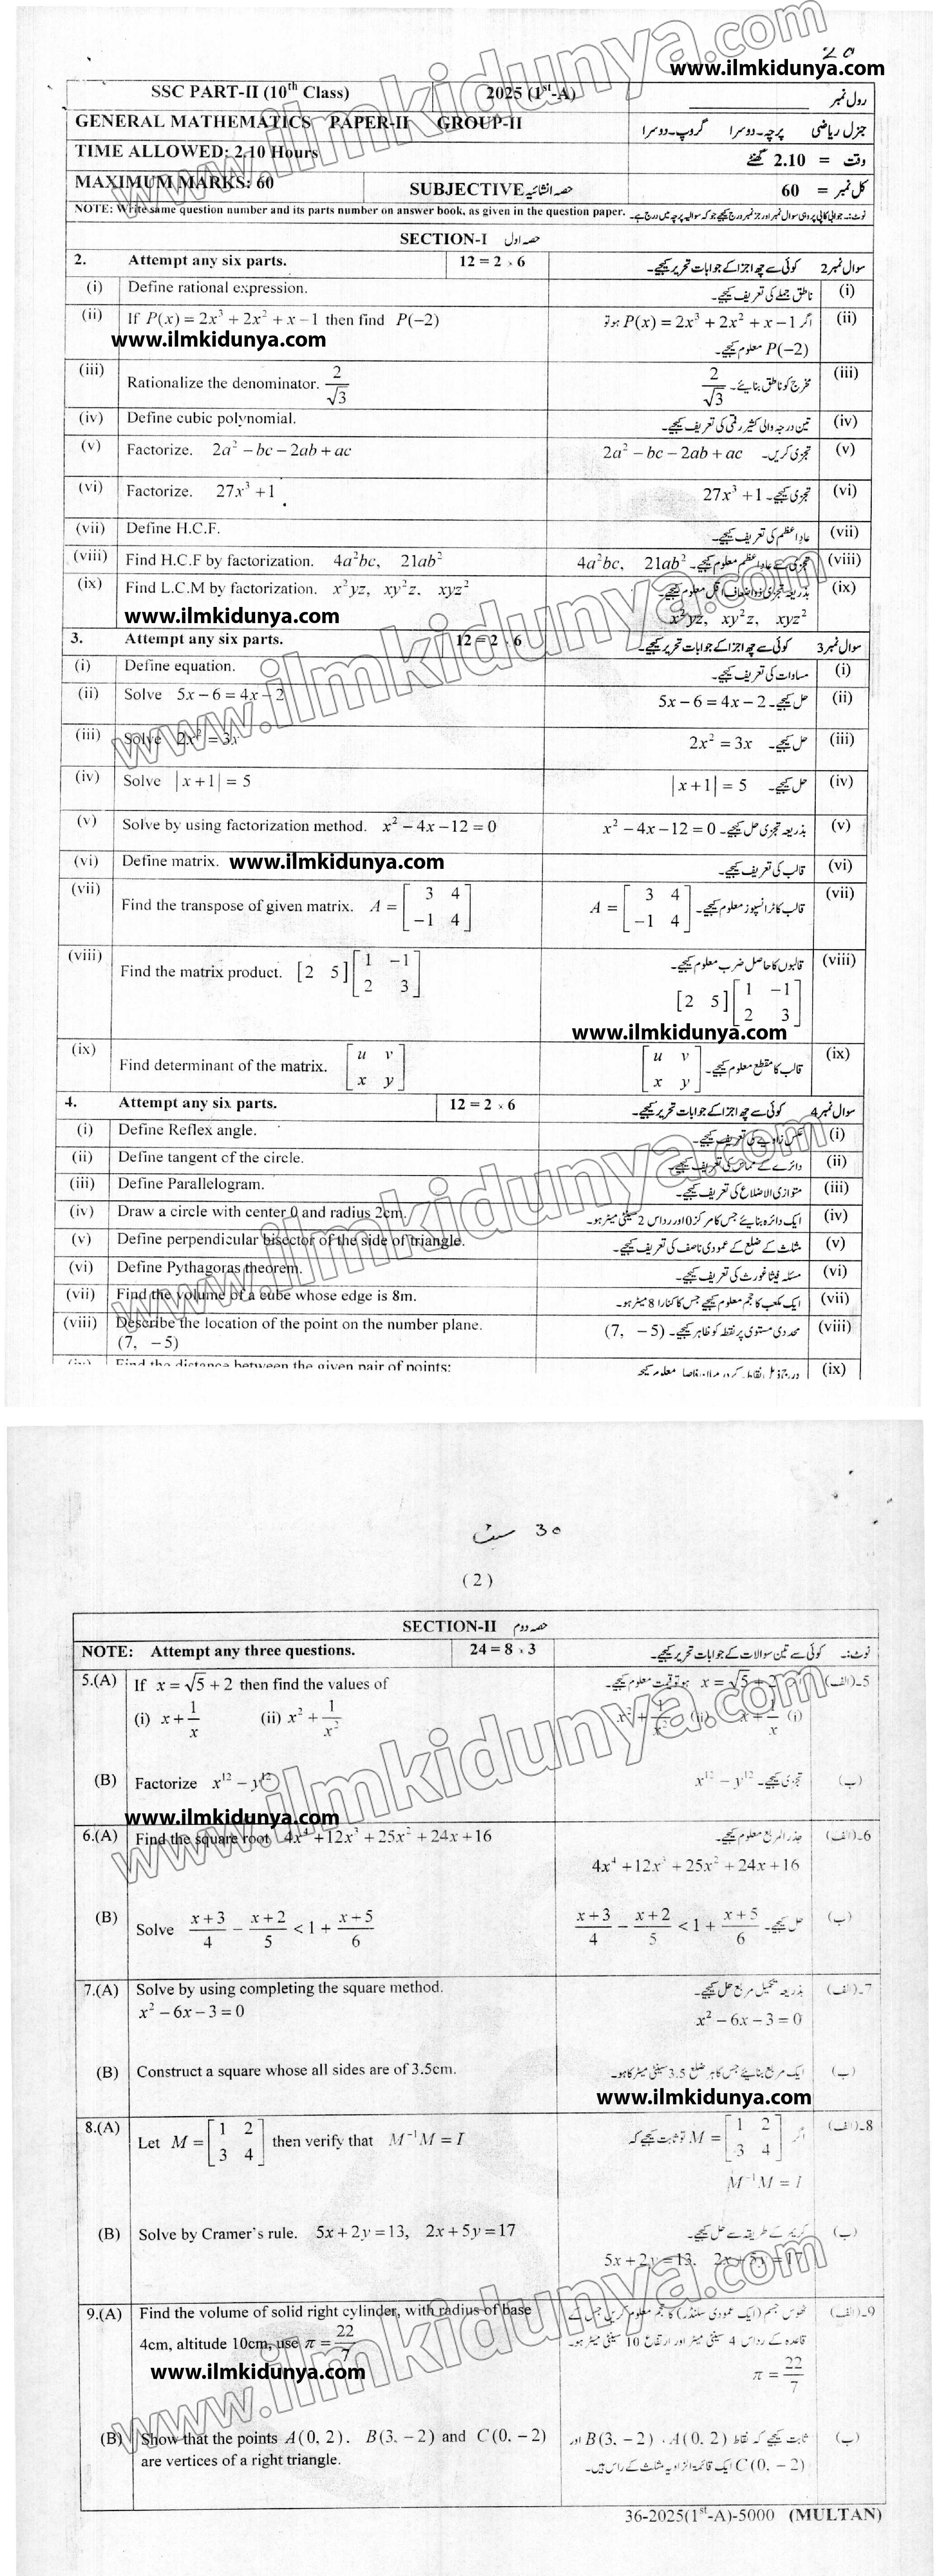 20
www.ilmkidunya.com
SSC PART-II (10th Class) 2025 (1st-A) رول نمبر
GENERAL MATHEMATICS PAPER-II GROUP-II جنرل ریاضی پرچہ۔دوسرا گروپ۔دوسرا
TIME ALLOWED: 2.10 Hours وقت = 2.10 گھنٹے
MAXIMUM MARKS: 60 SUBJECTIVE حصہ انشائیہ کل نمبر = 60
NOTE: Write same question number and its parts number on answer book, as given in the question paper. نوٹ:۔ جوابی کاپی پر وہی سوال نمبر اور جز نمبر درج کیجیے جو کہ سوالیہ پرچہ میں درج ہے۔
SECTION-I حصہ اول
2. Attempt any six parts. 12 = 2 × 6 کوئی سے چھ اجزا کے جوابات تحریر کیجیے۔ سوال نمبر 2
(i) Define rational expression. ناطق جملے کی تعریف کیجیے۔ (i)
(ii) If P(x) = 2x³ + 2x² + x − 1 then find P(−2) اگر P(x) = 2x³ + 2x² + x − 1 ہو تو (ii)
www.ilmkidunya.com P(−2) معلوم کیجیے۔
(iii) Rationalize the denominator. 2/√3 مخرج کو ناطق بنائیے۔ 2/√3 (iii)
(iv) Define cubic polynomial. تین درجہ والی کثیر رقمی کی تعریف کیجیے۔ (iv)
(v) Factorize. 2a² − bc − 2ab + ac تجزی کریں۔ 2a² − bc − 2ab + ac (v)
(vi) Factorize. 27x³ + 1 تجزی کیجیے۔ 27x³ + 1 (vi)
(vii) Define H.C.F. عاد اعظم کی تعریف کیجیے۔ (vii)
(viii) Find H.C.F by factorization. 4a²bc, 21ab² تجزی سے عاد اعظم معلوم کیجیے۔ 4a²bc, 21ab² (viii)
(ix) Find L.C.M by factorization. x²yz, xy²z, xyz² بذریعہ تجزی ذواضعاف اقل معلوم کیجیے۔ (ix)
www.ilmkidunya.com x²yz, xy²z, xyz²
3. Attempt any six parts. 12 = 2 × 6 کوئی سے چھ اجزا کے جوابات تحریر کیجیے۔ سوال نمبر 3
(i) Define equation. مساوات کی تعریف کیجیے۔ (i)
(ii) Solve 5x − 6 = 4x − 2 حل کیجیے۔ 5x − 6 = 4x − 2 (ii)
(iii) Solve 2x² = 3x حل کیجیے۔ 2x² = 3x (iii)
(iv) Solve |x + 1| = 5 حل کیجیے۔ |x + 1| = 5 (iv)
(v) Solve by using factorization method. x² − 4x − 12 = 0 بذریعہ تجزی حل کیجیے۔ x² − 4x − 12 = 0 (v)
(vi) Define matrix. www.ilmkidunya.com قالب کی تعریف کیجیے۔ (vi)
(vii) Find the transpose of given matrix. A = [3 4; −1 4] قالب کا ٹرانسپوز معلوم کیجیے۔ A = [3 4; −1 4] (vii)
(viii) Find the matrix product. [2 5] [1 −1; 2 3] قالبوں کا حاصل ضرب معلوم کیجیے۔ (viii)
[2 5] [1 −1; 2 3]
www.ilmkidunya.com
(ix) Find determinant of the matrix. [u v; x y] قالب کا مقطع معلوم کیجیے۔ [u v; x y] (ix)
4. Attempt any six parts. 12 = 2 × 6 کوئی سے چھ اجزا کے جوابات تحریر کیجیے۔ سوال نمبر 4
(i) Define Reflex angle. عکس زاویے کی تعریف کیجیے۔ (i)
(ii) Define tangent of the circle. دائرے کے مماس کی تعریف کیجیے۔ (ii)
(iii) Define Parallelogram. متوازی الاضلاع کی تعریف کیجیے۔ (iii)
(iv) Draw a circle with center 0 and radius 2cm. ایک دائرہ بنائیے جس کا مرکز 0 اور رداس 2 سینٹی میٹر ہو۔ (iv)
(v) Define perpendicular bisector of the side of triangle. مثلث کے ضلع کے عمودی ناصف کی تعریف کیجیے۔ (v)
(vi) Define Pythagoras theorem. مسئلہ فیثاغورث کی تعریف کیجیے۔ (vi)
(vii) Find the volume of a cube whose edge is 8m. ایک مکعب کا حجم معلوم کیجیے جس کا کنارا 8 میٹر ہو۔ (vii)
(viii) Describe the location of the point on the number plane. محددی مستوی پر نقطہ کو ظاہر کیجیے۔ (7, −5) (viii)
(7, −5)
(ix) Find the distance between the given pair of points: (ix)
30 سٹ
(2)
SECTION-II حصہ دوم
NOTE: Attempt any three questions. 24 = 8 × 3 کوئی سے تین سوالات کے جوابات تحریر کیجیے۔ نوٹ:۔
5.(A) If x = √5 + 2 then find the values of x = √5 + 2 ہو تو قیمت معلوم کیجیے۔ 5۔(الف)
(i) x + 1/x (ii) x² + 1/x² x² + 1/x² (ii) x + 1/x (i)
(B) Factorize x¹² − y¹² تجزی کیجیے۔ x¹² − y¹² (ب)
www.ilmkidunya.com
6.(A) Find the square root 4x⁴ + 12x³ + 25x² + 24x + 16 جذر المربع معلوم کیجیے۔ 6۔(الف)
4x⁴ + 12x³ + 25x² + 24x + 16
(B) Solve (x+3)/4 − (x+2)/5 < 1 + (x+5)/6 حل کیجیے۔ (x+3)/4 − (x+2)/5 < 1 + (x+5)/6 (ب)
7.(A) Solve by using completing the square method. بذریعہ تکمیل مربع حل کیجیے۔ 7۔(الف)
x² − 6x − 3 = 0 x² − 6x − 3 = 0
(B) Construct a square whose all sides are of 3.5cm. ایک مربع بنائیے جس کا ہر ضلع 3.5 سینٹی میٹر کا ہو۔ (ب)
www.ilmkidunya.com
8.(A) Let M = [1 2; 3 4] then verify that M⁻¹M = I اگر M = [1 2; 3 4] تو ثابت کیجیے کہ 8۔(الف)
M⁻¹M = I
(B) Solve by Cramer's rule. 5x + 2y = 13, 2x + 5y = 17 کریمر کے طریقہ سے حل کیجیے۔ (ب)
5x + 2y = 13, 2x + 5y = 17
9.(A) Find the volume of solid right cylinder, with radius of base ٹھوس جسم (ایک عمودی سلنڈر) کا حجم معلوم کریں جس کے 9۔(الف)
4cm, altitude 10cm, use π = 22/7 قاعدہ کے رداس 4 سینٹی میٹر اور ارتفاع 10 سینٹی میٹر ہو۔
www.ilmkidunya.com π = 22/7
(B) Show that the points A(0, 2), B(3, −2) and C(0, −2) ثابت کیجیے کہ نقاط A(0, 2)، B(3, −2) اور (ب)
are vertices of a right triangle. C(0, −2) ایک قائمۃ الزاویہ مثلث کے راس ہیں۔
36-2025(1st-A)-5000 (MULTAN)